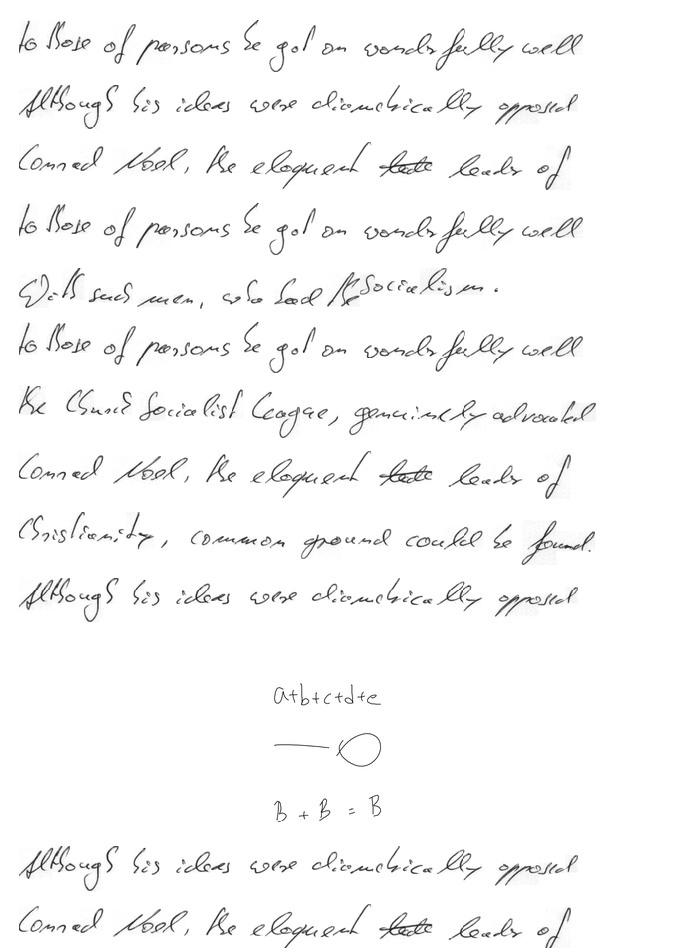 to those of persons he got on wonderfully well
Although his ideas were diametrically opposed
Conrad Noel, the eloquent leader of
to those of persons he got on wonderfully well
With such men, who had the Socialism.
to those of persons he got on wonderfully well
the Church Socialist League, genuinely advocated
Conrad Noel, the eloquent leader of
Christianity, common ground could be found.
Although his ideas were diametrically opposed
a+b+c+d+e
B + B = B
Although his ideas were diametrically opposed
Conrad Noel, the eloquent leader of